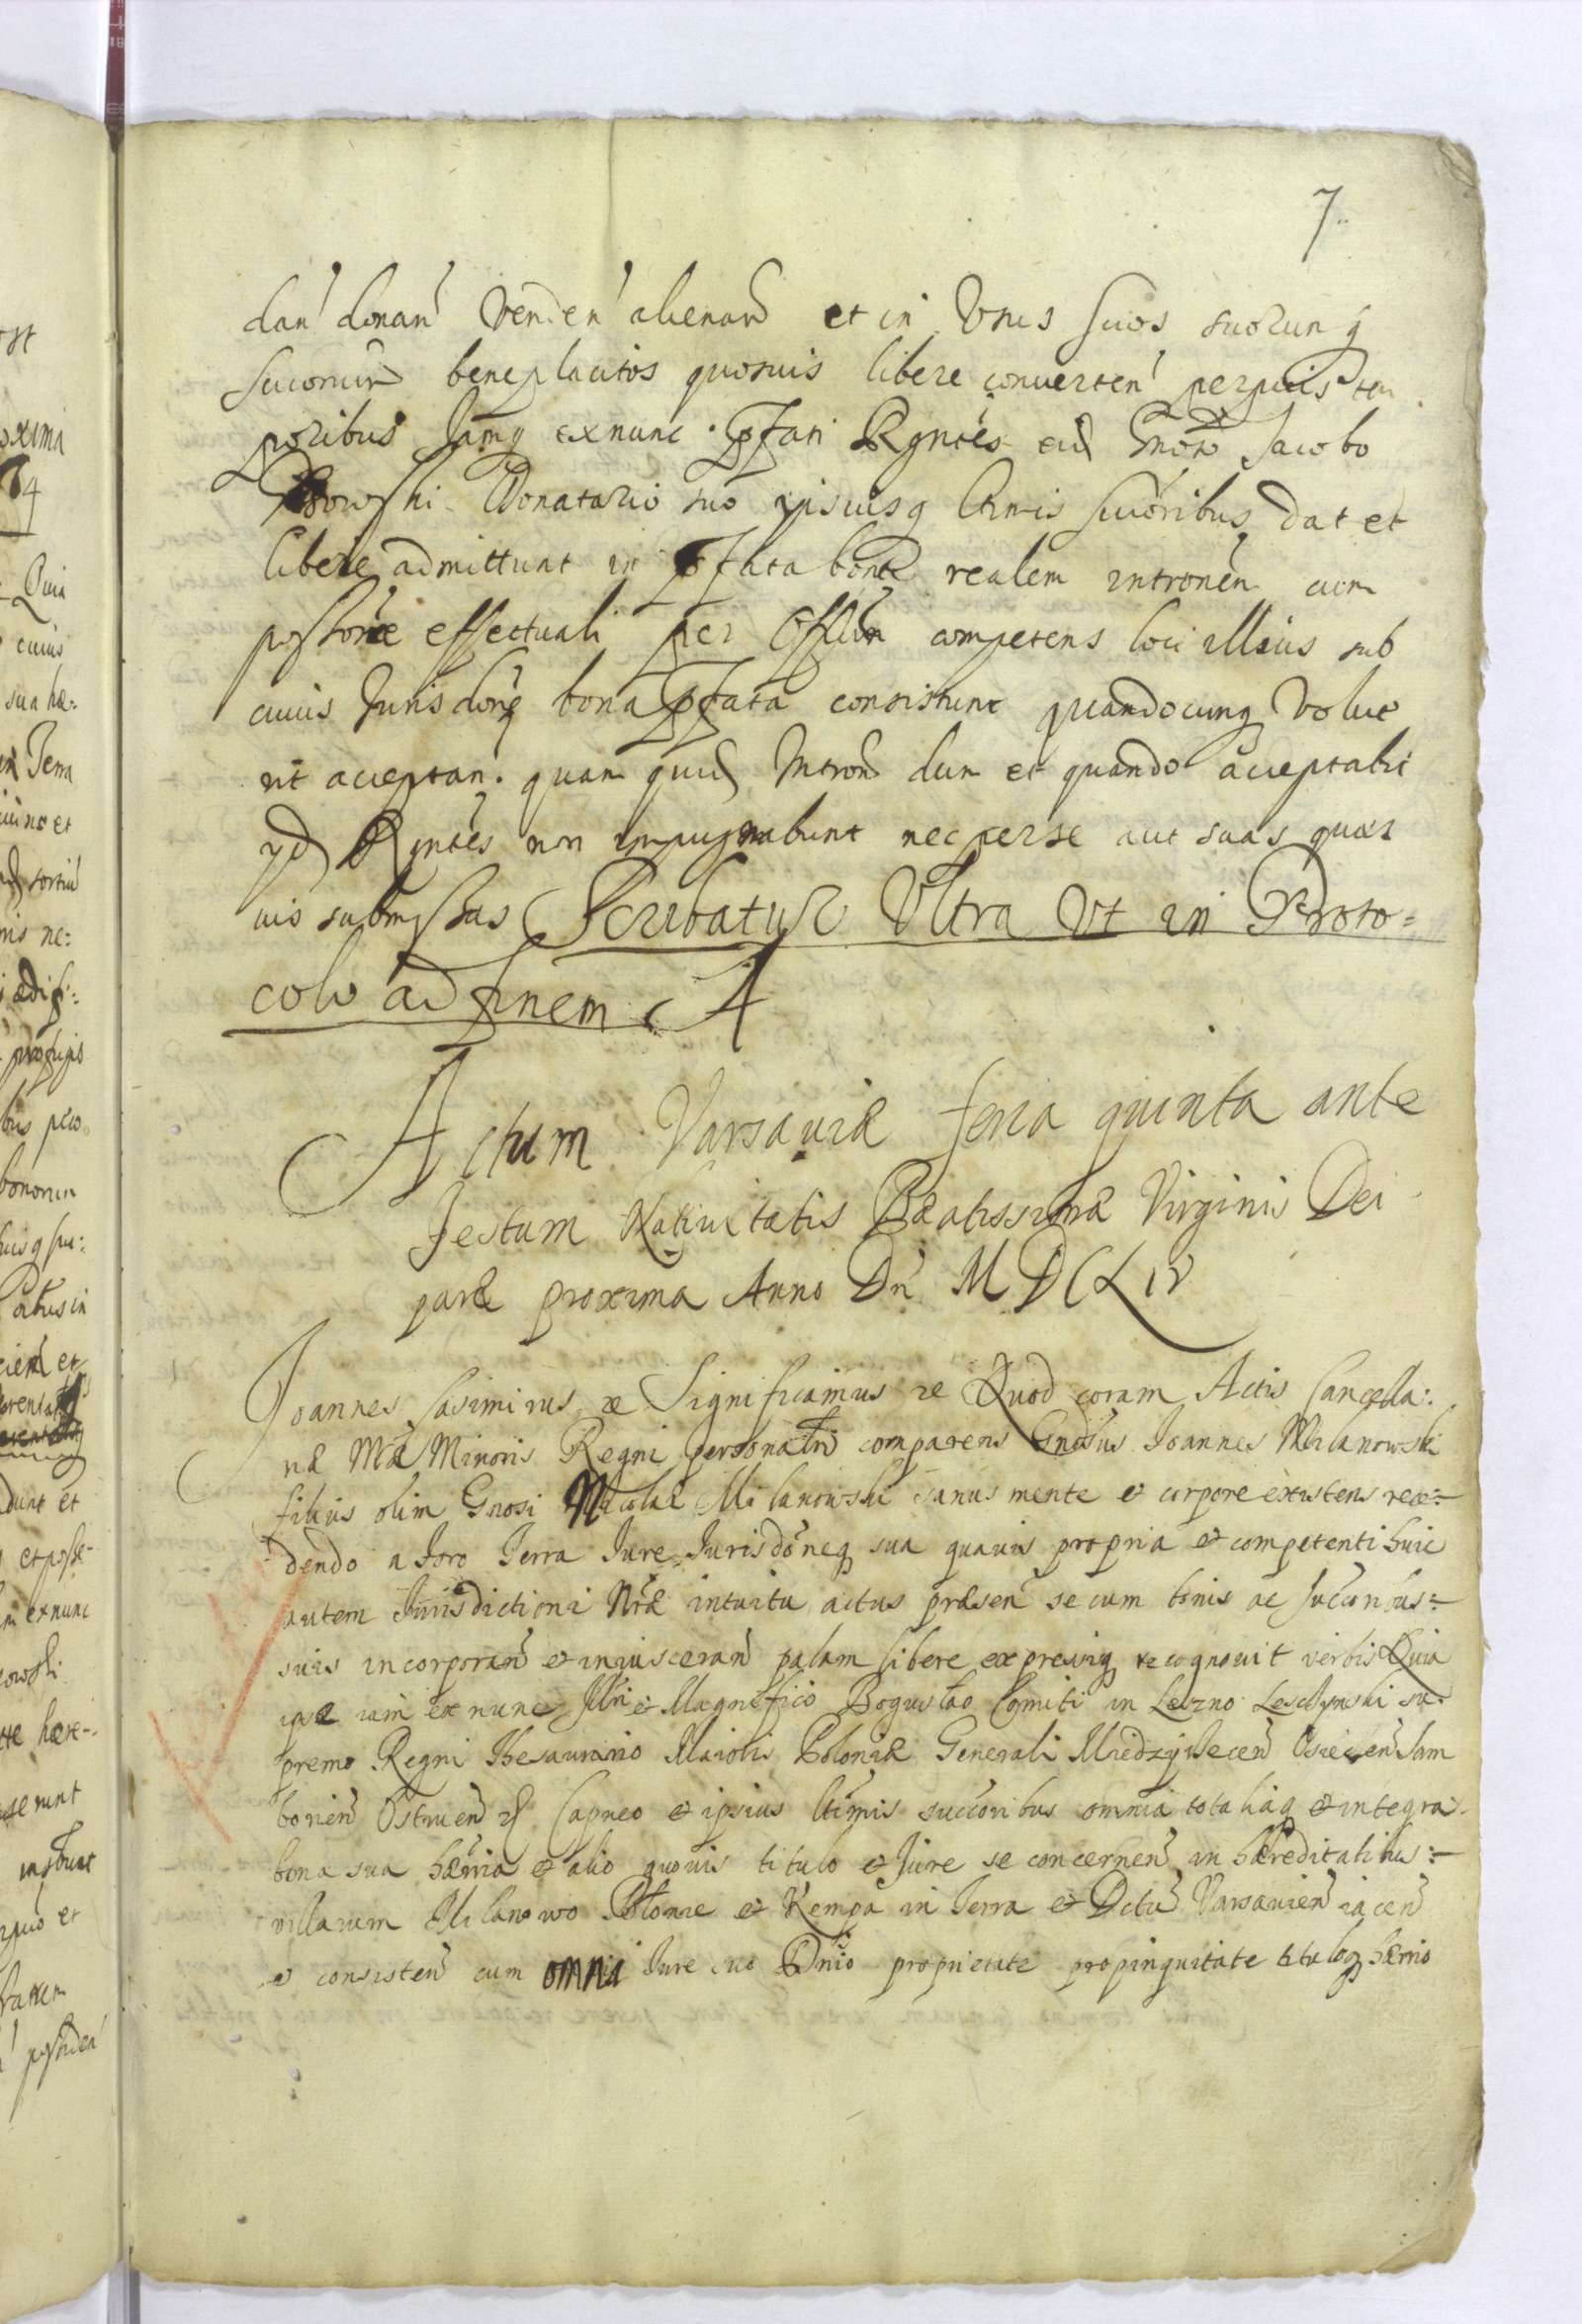 7
dan' donan' venden' alienand et in Usus suos suorumq
Succorum beneplacitos quosuis libere conuerten' perpuis tem
poribus Jamq exnunc pfati Rgntes eid Gnoso Jacobo
Donatario suo ipsiusq ltimis succoribus dat et
libere admittunt in pfata bona realem intronem cum
possone effectuali per Offm competens loci illius sub
cuius Jurisdone bona pfata consistunt quandocunq volue
rit acceptan. quam quid Intron dum et quando acceptabit
yd Rgntes non impugnabunt nec per se aut suas quas
uis submissas Scribatur Ultra Ut in Proto=
colo ad finem A
Actum Varsauiæ feria quinta ante
Festum Natiuitatis Beatissimæ Virginis Dei
paræ proxima Anno Dn' MDCLIV
Joannes Casimirus æ Significamus æ Quod coram Actis Cancella:
riæ Mræ Minoris Regni personaltr comparens Gnosus Joannes Milanowski
filius olim Gnosi Nicolai Milanowski sanus mente et corpore existens rece=
dendo a Foro Terra Jure Jurisdoneq sua quauis propria et competenti huic
autem Jurisdictioni Nræ intuitu actus præsen se cum bonis ac succoribus=
suis incorporan et inuisceran palam libere expresseq recognouit verbis Quia
ipse iam ex nunc Illri et Magnifico Boguslao Comiti in Leszno Lesczynski su=
premo Regni Thesaurario Maioris Poloniæ Generali Miedzyrecen Osiecen Sam
borien Ostrnen Capneo et ipsius ltimis succoribus omnia totaliaq et integra
bona sua hæria et alio quouis titulo et Jure se concernen in hæreditatibus=
villarum Milanowo et Kempa in Terra et Dctu Varsauien iacen
et consisten cum omni Jure suo Dnio proprietate propinquitate tituloq hærio